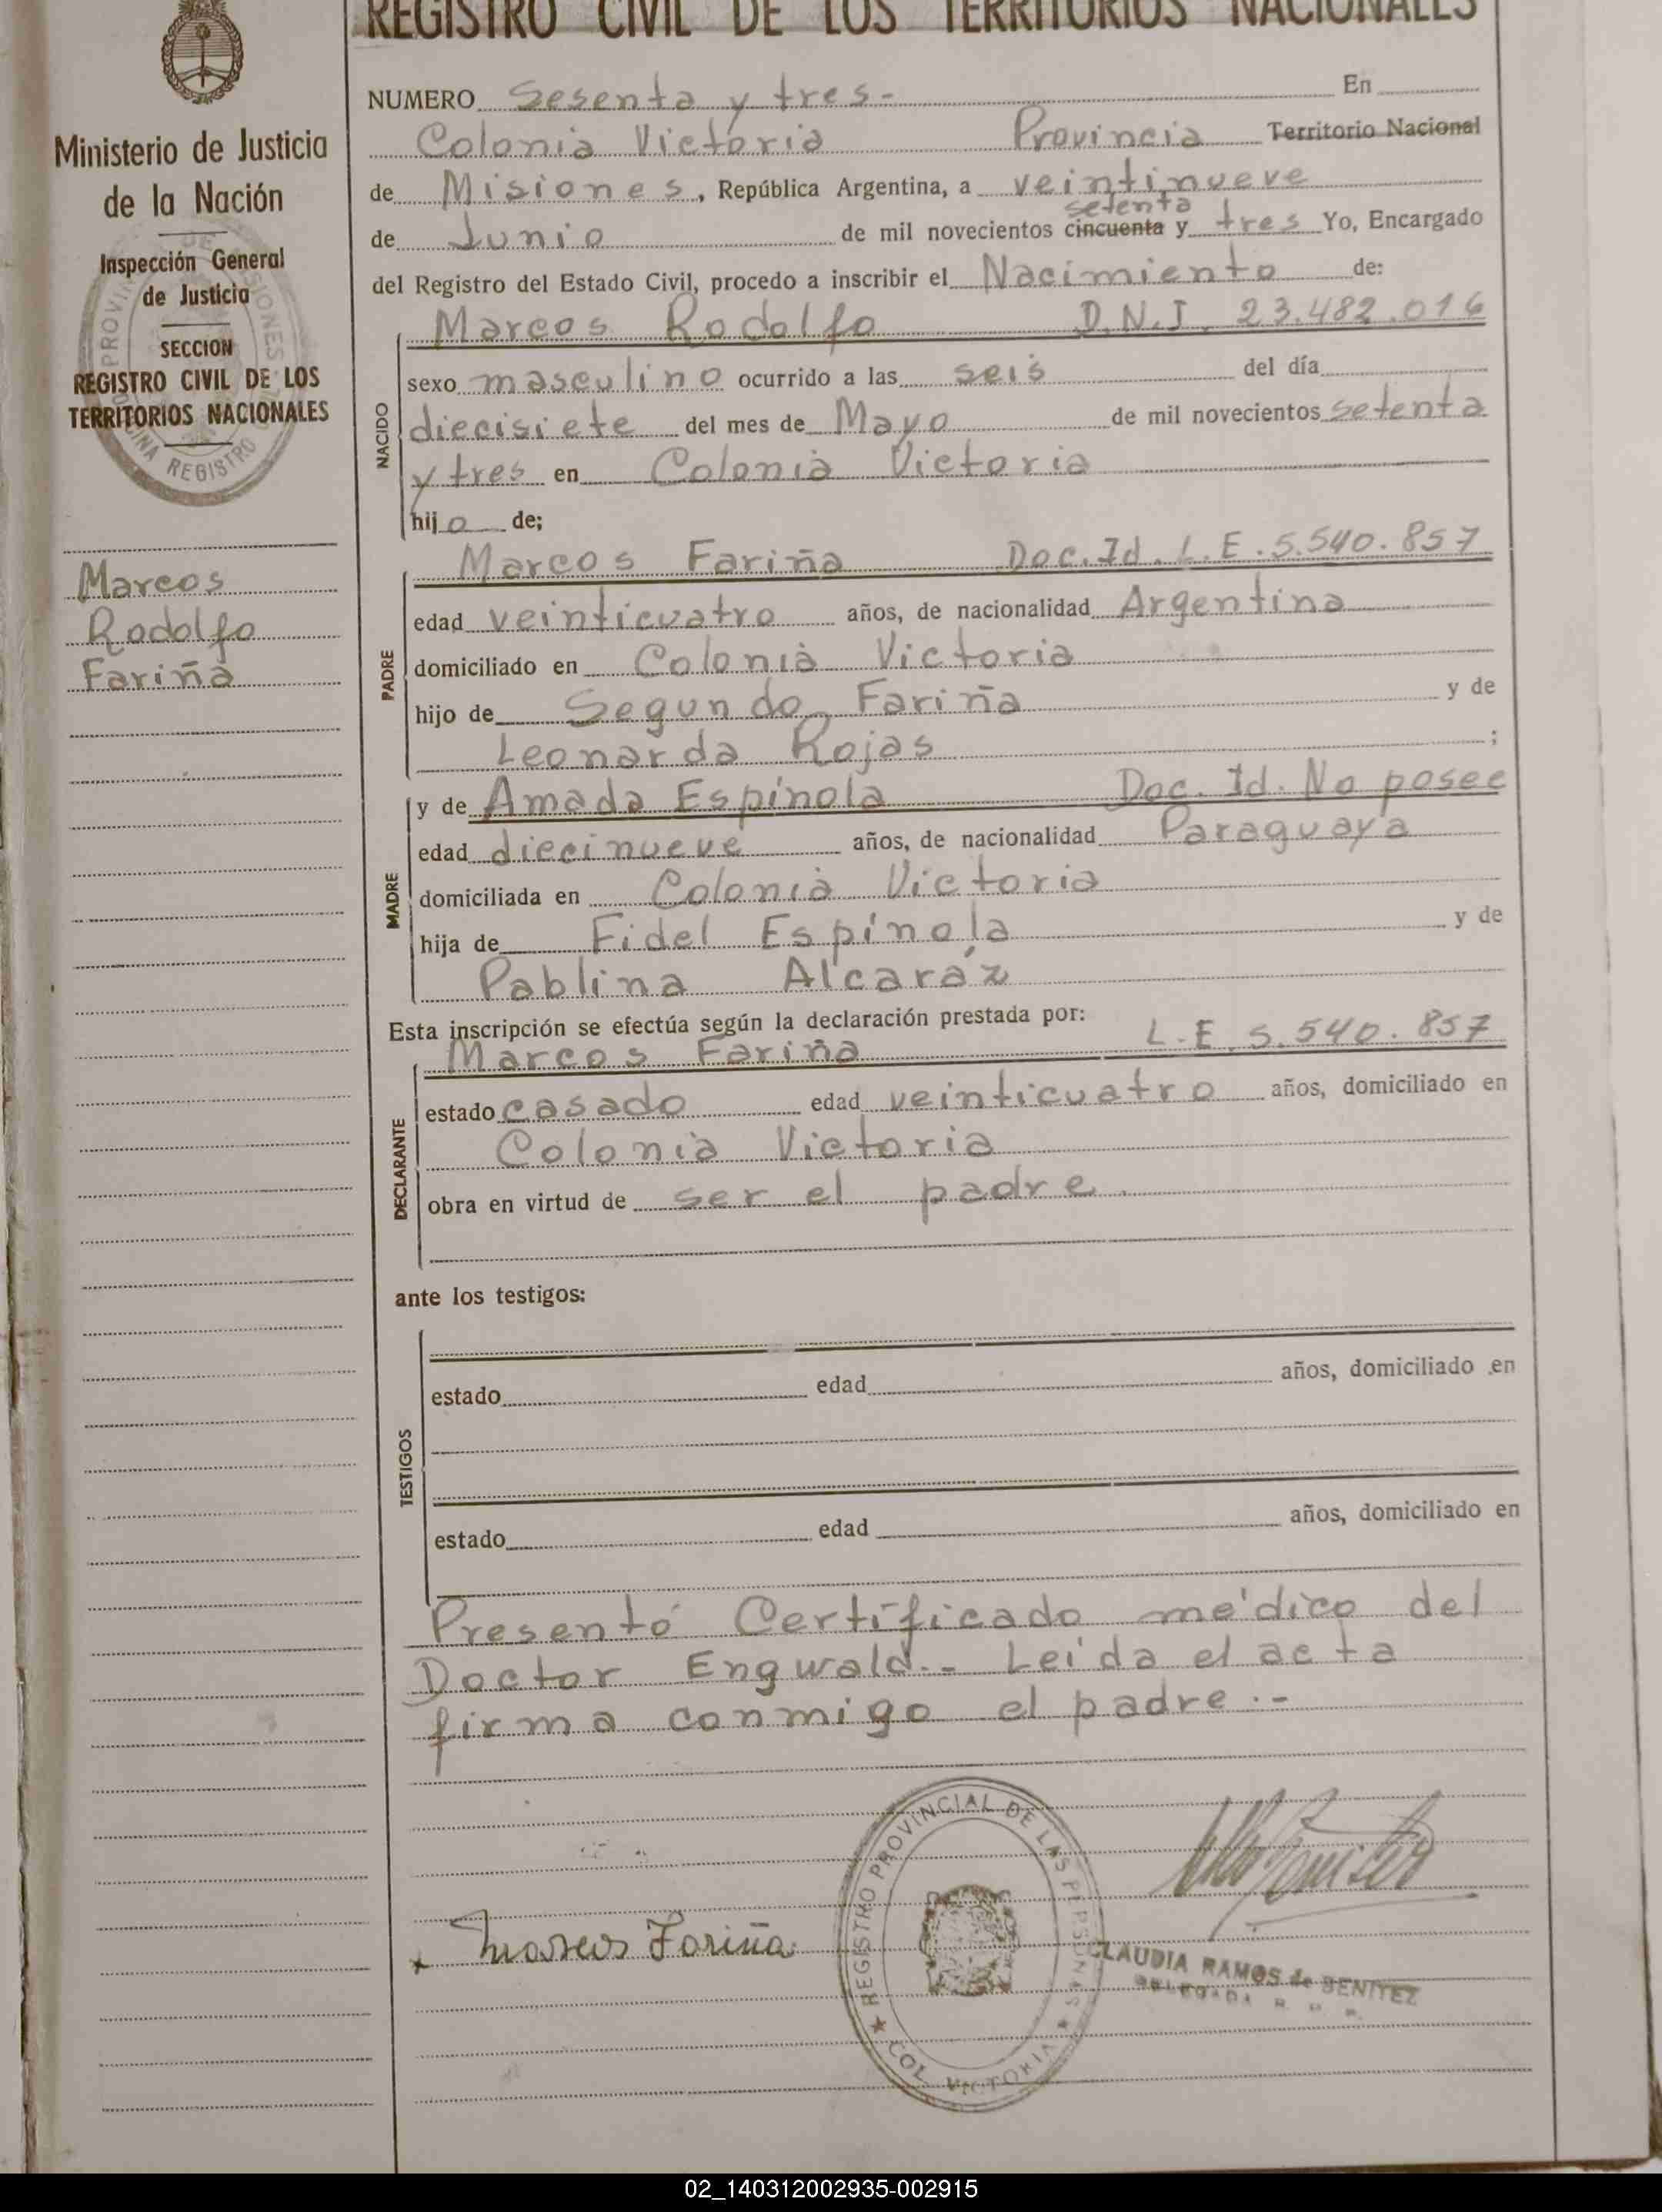 REGISTRO CIVIL DE LOS TERRITORIOS NACIONALES
Ministerio de Justicia
de la Nación
Inspección General
de Justicia
SECCION
REGISTRO CIVIL DE LOS
TERRITORIOS NACIONALES
REGISTRO
Marcos
Rodolfo
Fariña
NUMERO Sesenta y tres- En
Colonia Victoria Provincia Territorio Nacional
de Misiones, República Argentina, a veintinueve
setenta
de Junio de mil novecientos cincuenta y tres Yo, Encargado
del Registro del Estado Civil, procedo a inscribir el Nacimiento de:
Marcos Rodolfo D.N.I. 23.482.016
NACIDO
sexo masculino ocurrido a las seis del día
diecisiete del mes de Mayo de mil novecientos setenta
y tres en Colonia Victoria
hijo de;
Marcos Fariña Doc. Id. L.E. 5.540.857
PADRE
edad veinticuatro años, de nacionalidad Argentina
domiciliado en Colonia Victoria
hijo de Segundo Fariña y de
Leonarda Rojas ;
y de Amada Espínola Doc. Id. No posee
MADRE
edad diecinueve años, de nacionalidad Paraguaya
domiciliada en Colonia Victoria
hija de Fidel Espínola y de
Pablina Alcaráz
Esta inscripción se efectúa según la declaración prestada por:
Marcos Fariña L.E. 5.540.857
DECLARANTE
estado casado edad veinticuatro años, domiciliado en
Colonia Victoria
obra en virtud de ser el padre.
ante los testigos:
TESTIGOS
estado edad años, domiciliado en
estado edad años, domiciliado en
Presentó Certificado médico del
Doctor Engwald.- Leída el acta
firma conmigo el padre.-
Marcos Fariña
REGISTRO PROVINCIAL DE LAS PERSONAS
COL. VICTORIA
CLAUDIA RAMOS de BENITEZ
DELEGADA R. P. P.
02_140312002935-002915